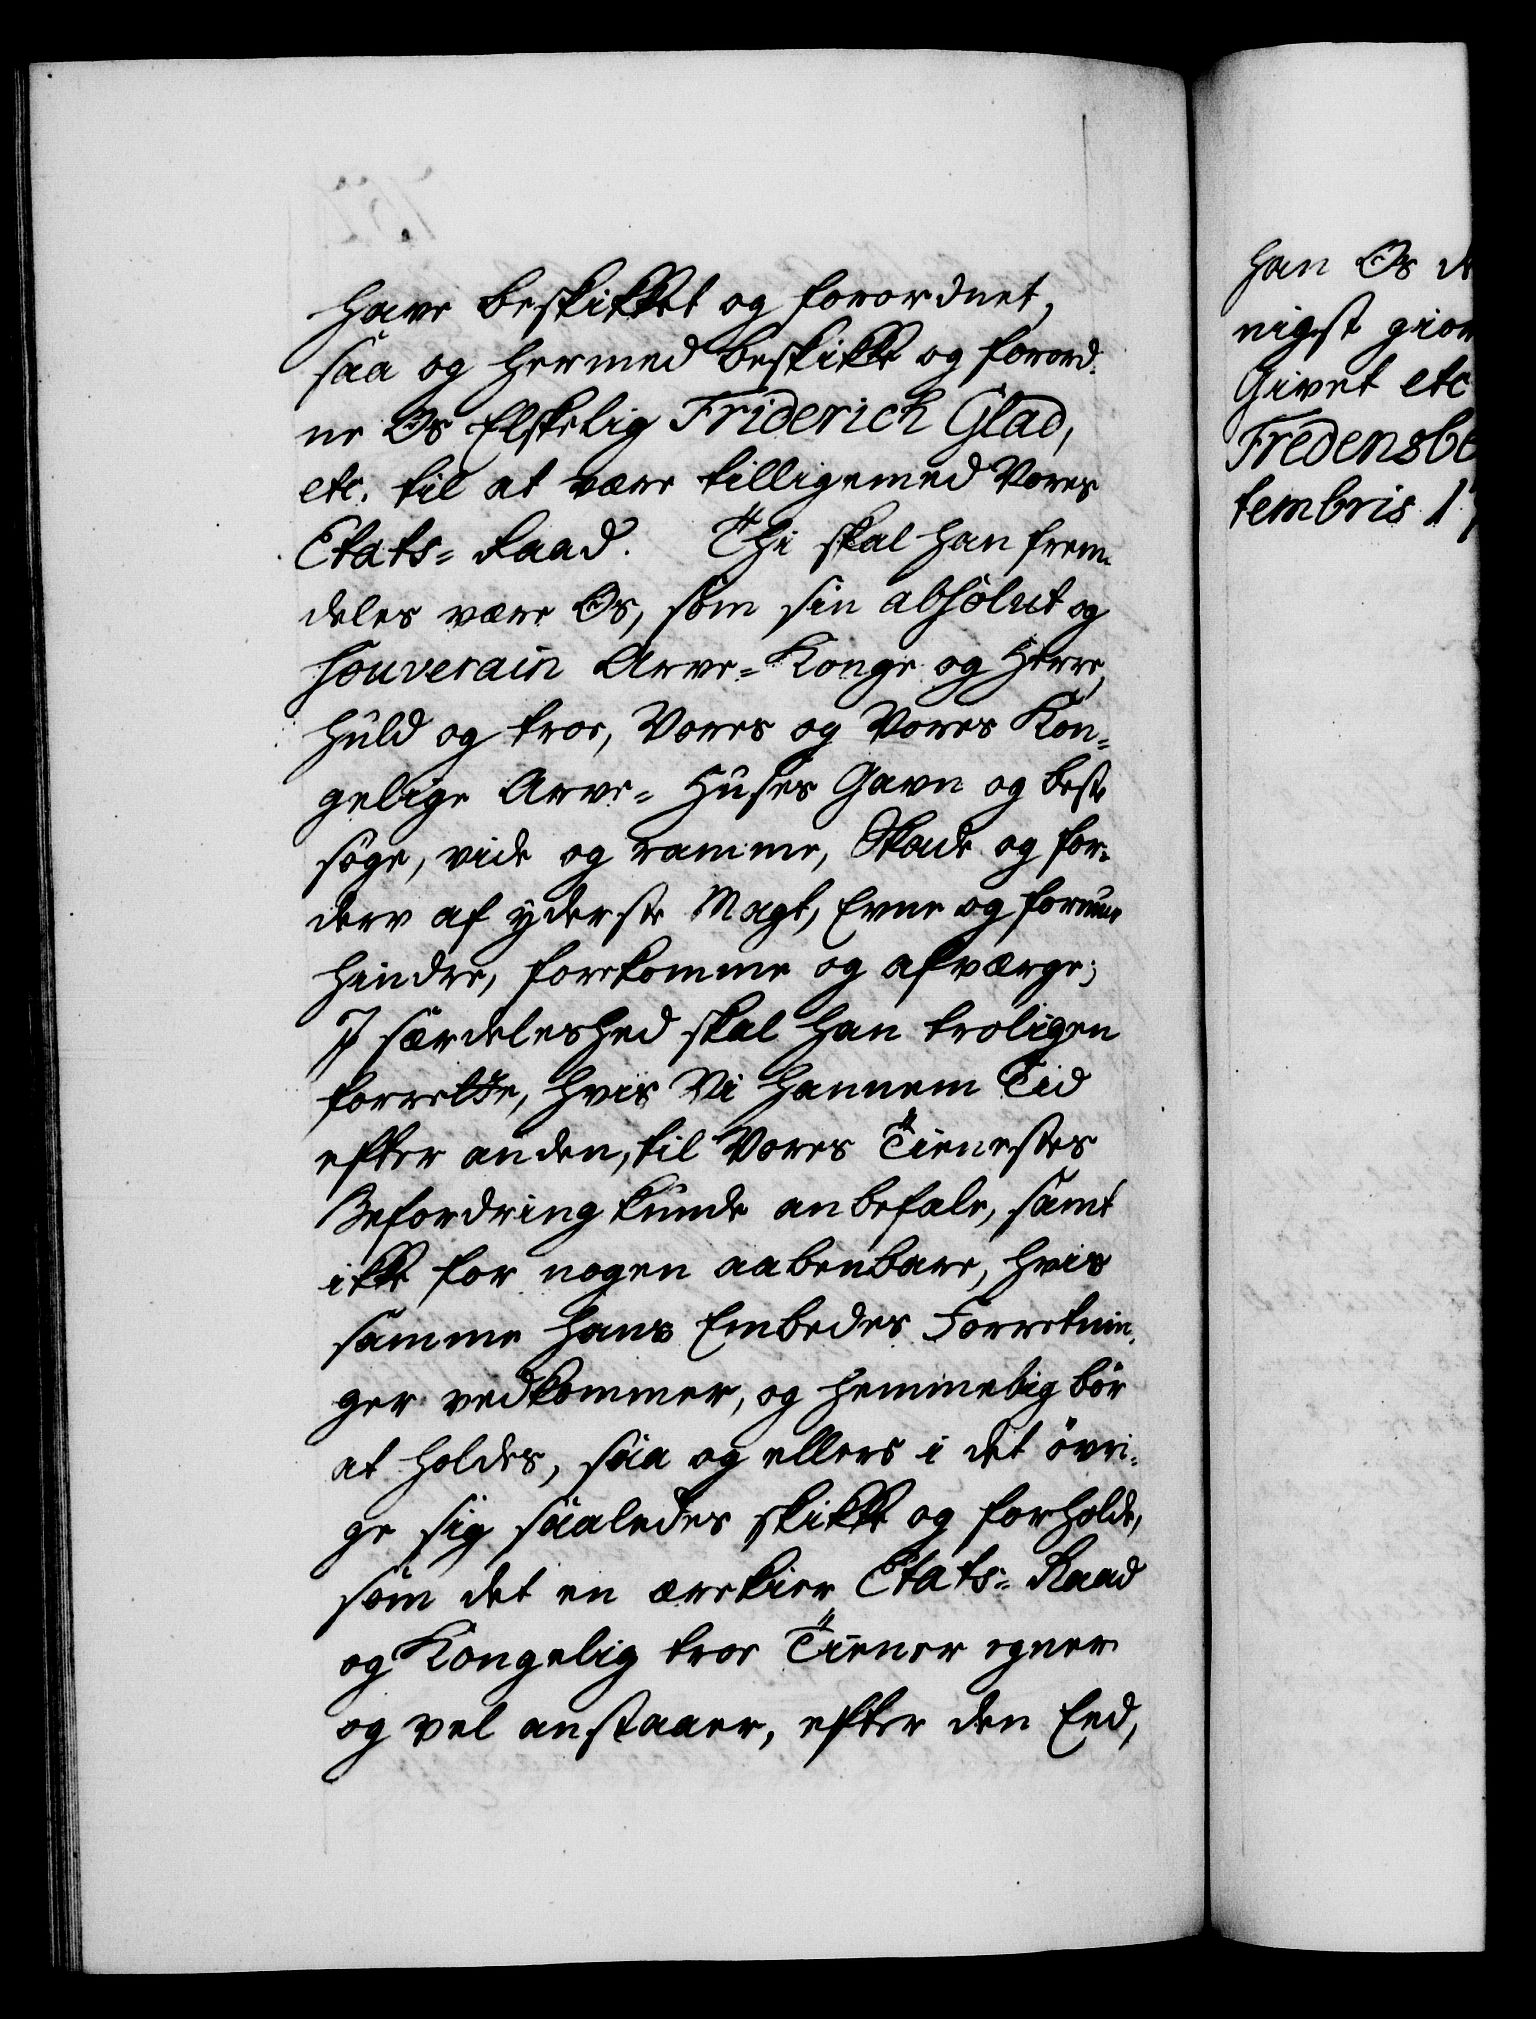 have beskikket og forordnet,
saa og hermed beskikke og forord-
ne Os Elskelig Friderich Glad,
etc. til at være tilligemed Vores
Etats-Raad. Thi skal han frem-
deles være Os, som sin absolut og
souverain Arve-Konge og Herre,
huld og troe, Vores og Vores Kon-
gelige Arve-Huses Gavn og beste
søge, vide og ramme, Skade og for-
derv af yderste Magt, Evne og formue
hindre, forekomme og afværge;
I særdeleshed skal han troligen
forrette, hvis Vi hannem Tid
efter anden, til Vores Tienestes
Befordring kunde anbefale, samt
ikke for nogen aabenbare, hvis
samme hans Embedes Forretnin-
ger vedkommer, og hemmelig bør
at holdes, saa og ellers i det øvri-
ge sig saaledes skikke og forholde,
som det en ærekier Etats-Raad
og Kongelig troe Tiener egner
og vel anstaaer, efter den Eed,
han Os de
nigst gior
Givet etc
Fredensbe
tembris 17